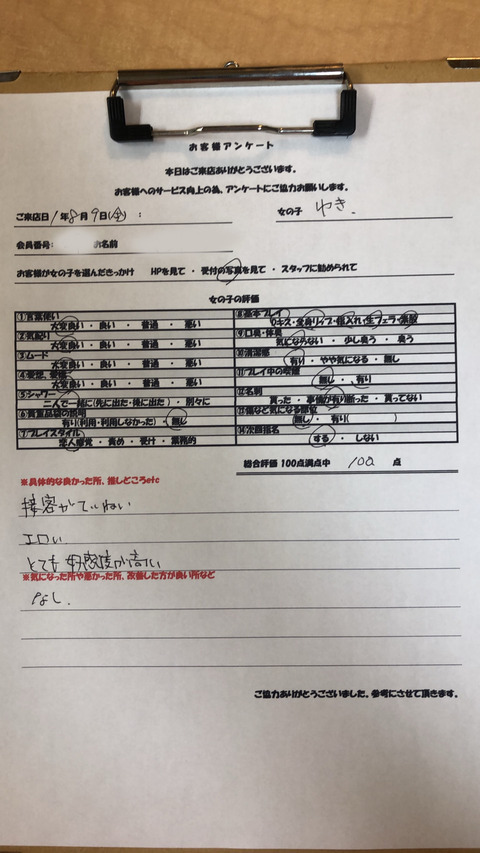 お客様アンケート
本日はご来店ありがとうございます。
お客様へのサービス向上の為、アンケートにご協力お願いします。
ご来店日 1年8月9日(金) : 女の子 ゆき.
会員番号: お名前
お客様が女の子を選んだきっかけ HPを見て ・ 受付の写真を見て ・ スタッフに勧められて
女の子の評価
①言葉使い
大変良い ・ 良い ・ 普通 ・ 悪い
②気配り
大変良い ・ 良い ・ 普通 ・ 悪い
③ムード
大変良い ・ 良い ・ 普通 ・ 悪い
④
大変良い ・ 良い ・ 普通 ・ 悪い
⑤シャワー
二人で一緒に(先に出た・後に出た) ・ 別々に
⑥貴重品袋の説明
有り(利用・利用しなかった) ・ 無し
⑦プレイスタイル
恋人感覚 ・ 責め ・ 受け ・ 業務的
⑧基本プレイ
Dキス・全身リップ・指入れ・生フェラ・
⑨口臭・体臭
気にならない ・ 少し臭う ・ 臭う
⑩清潔感
有り ・ やや気になる ・ 無し
⑪プレイ中の
無し ・ 有り
⑫名刺
貰った ・ 事情が有り断った ・ 貰ってない
⑬傷など気になる部位
無し ・ 有り( )
⑭次回指名
する ・ しない
総合評価 100点満点中 100 点
※具体的な良かった所、推しどころetc
接客がていねい
エロい
とても好感度が高い
※気になった所や悪かった所、改善した方が良い所など
なし.
ご協力ありがとうございました。参考にさせて頂きます。